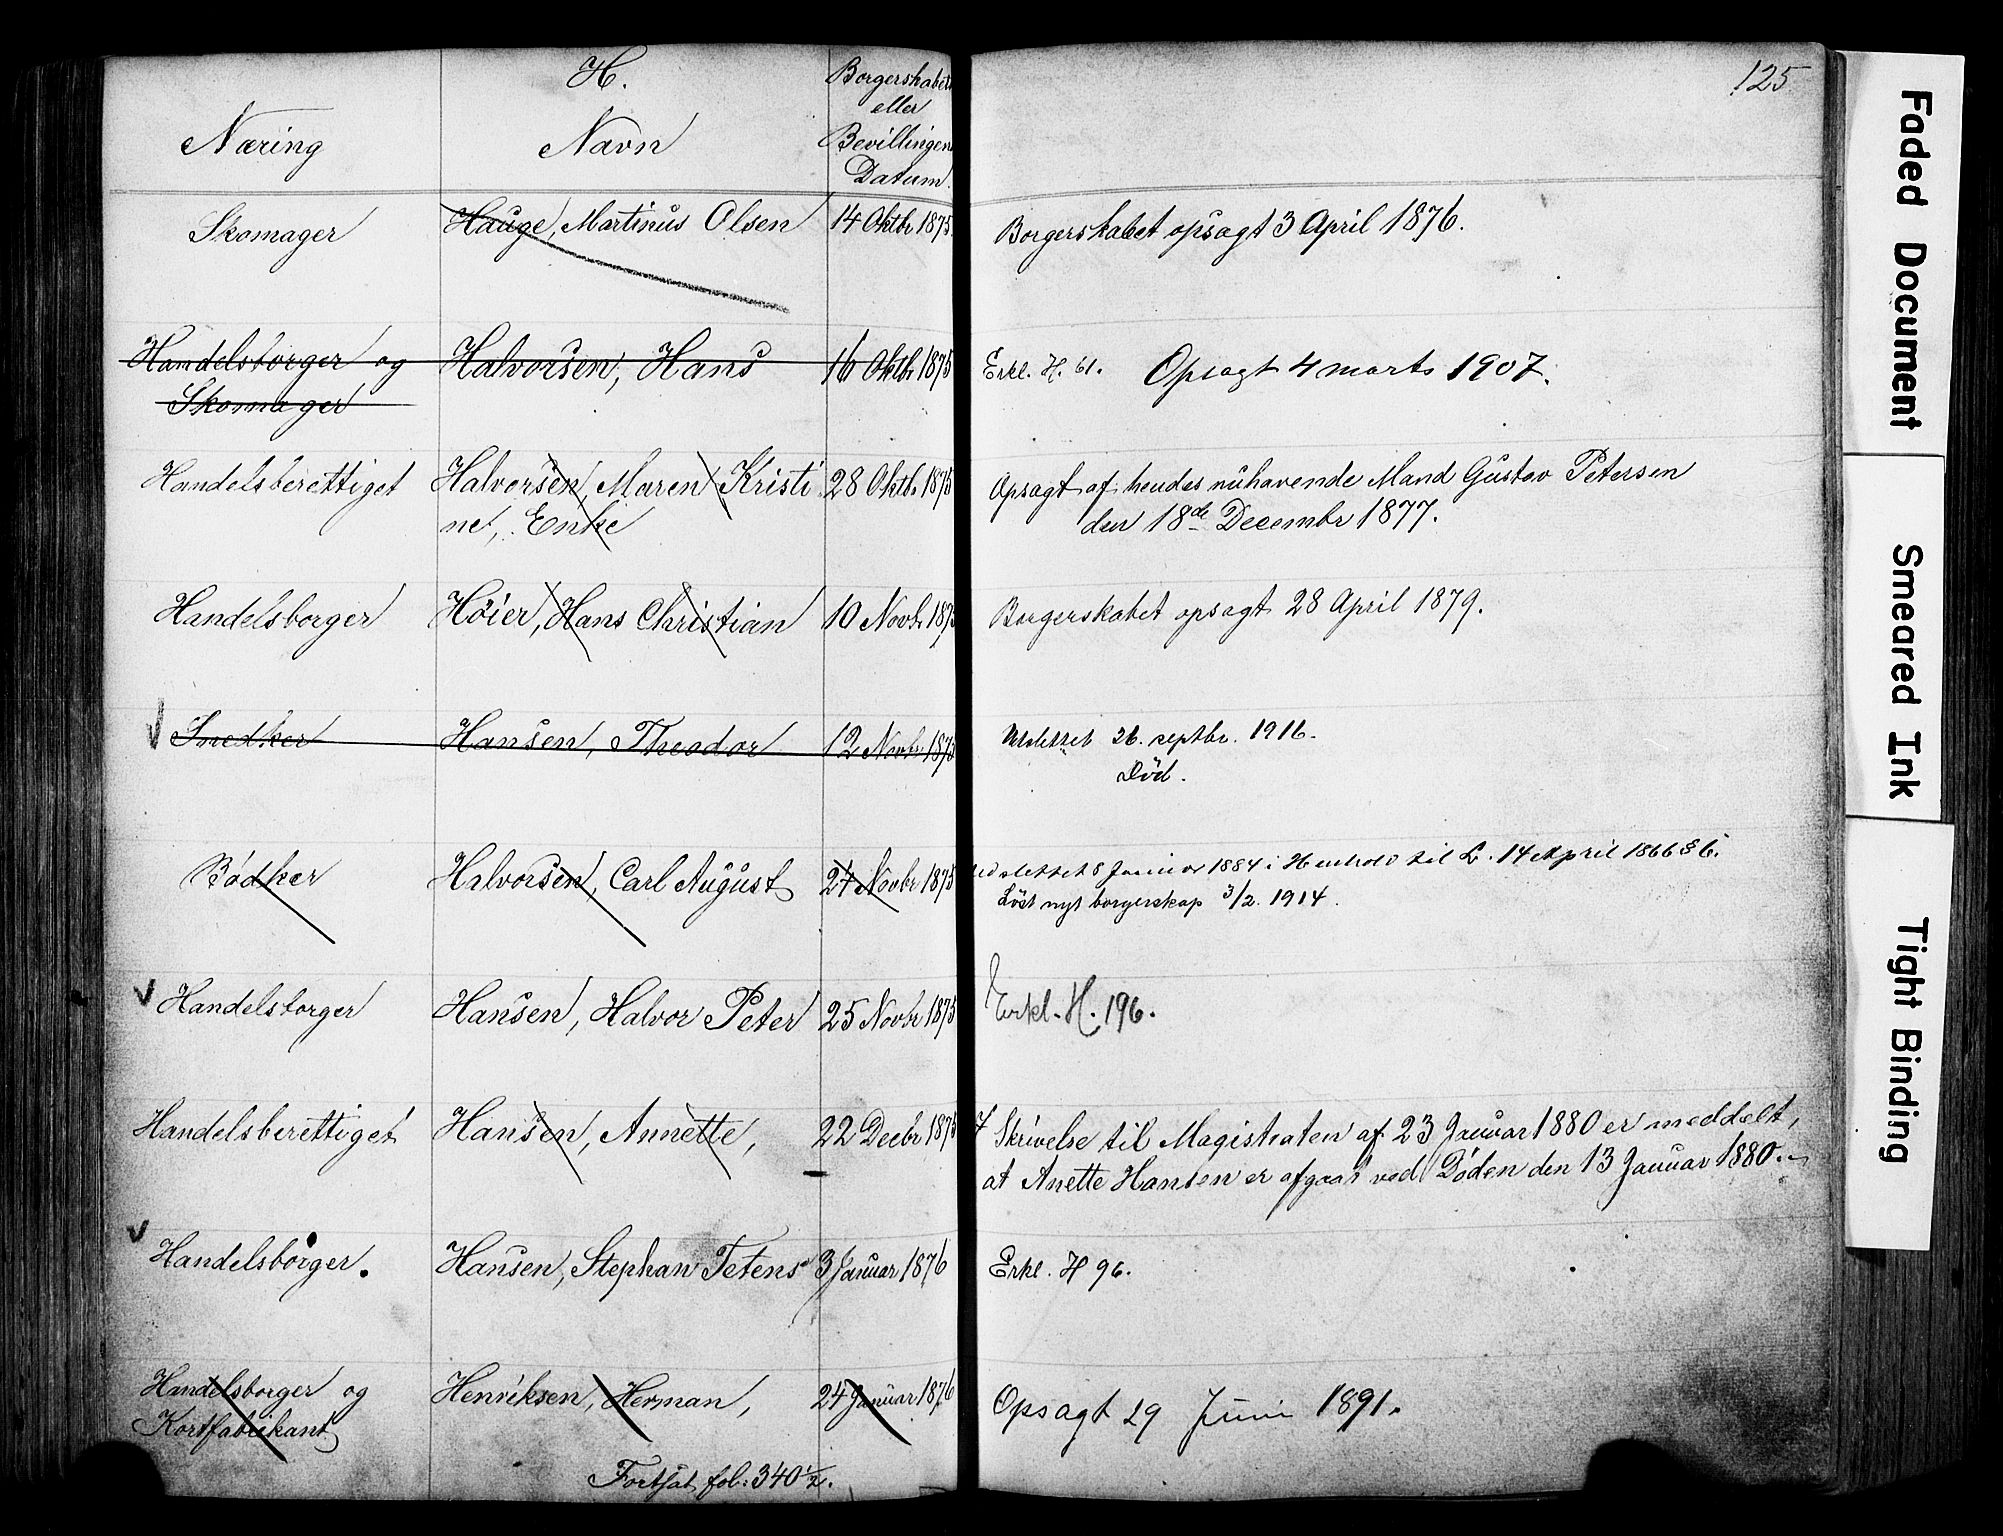 H.
Næring
Navn
Borgerskabets
eller
Bevillingens
Datum.
125
Skomager Hauge, Martinus Olsen 14 Oktbr 1875. Borgerskabet opsagt 3 April 1876.
Handelsborger og Halvorsen, Hans 16 Oktbr 1875 Erkl. H. 61. Opsagt 4 marts 1907.
Skomager
Handelsberettiget Halvorsen, Maren Kristi 28 Oktbr 1875 Opsagt af hendes nuhavende Mand Gustav Petersen
ne, Enke den 18de Decembr 1877.
Handelsborger Høier, Hans Christian 10 Novbr 1875 Borgerskabet opsagt 28 April 1879.
Smedker Hansen, Theodor 12 Novbr 1875 Udslettet 26. septbr. 1916.
Død.
Bødker Halvorsen, Carl August 24 Novbr 1875 Udslettet 8 Januar 1884 i Henhold til L. 14 April 1866 § 6.
Løst nyt borgerskap 3/2. 1914.
Handelsborger Hansen, Halvor Peter 25 Novbr 1875 Erkl. H. 196.
Handelsberettiget Hansen, Annette, 22 Decbr 1875 I Skrivelse til Magistraten af 23 Januar 1880 er meddelt,
at Anette Hansen er afgaaet ved Døden den 13 Januar 1880.
Handelsborger. Hansen, Stephan Tetens 3 Januar 1876 Erkl. H 96.
Handelsborger og Henriksen, Herman, 24 Januar 1876 Opsagt 29 Juni 1891.
Kortfabrikant
Fortsat fol: 340 1/2.
Faded Document
Smeared Ink
Tight Binding